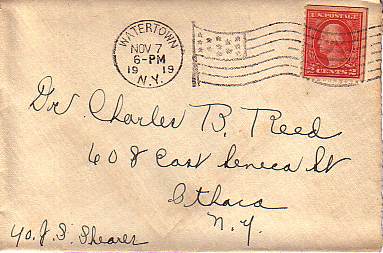 WATERTOWN
NOV 7
6-PM
1919
N.Y.
U.S. POSTAGE
2 CENTS 2
Dr Charles B. Reed
608 East Seneca St
Ithaca
N.Y.
c/o J. S. Shearer